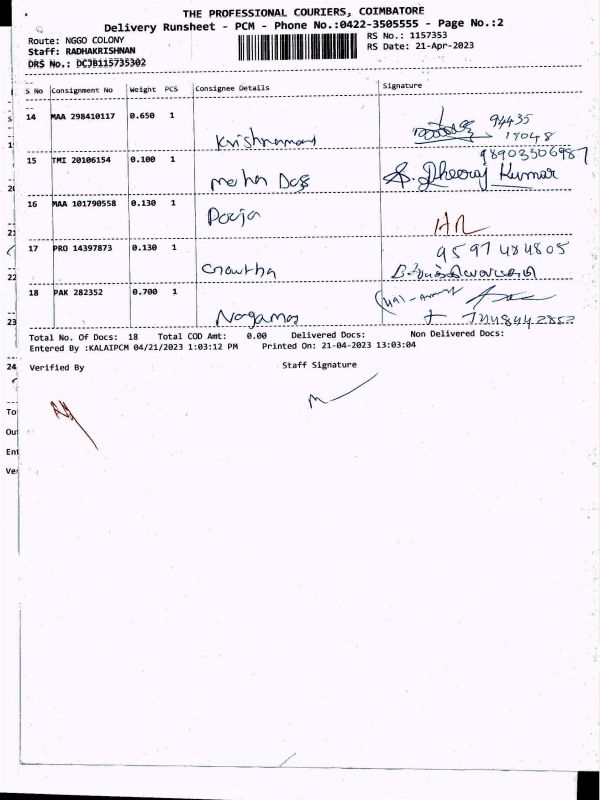 THE PROFESSIONAL COURIERS, COIMBATORE
Delivery Runsheet - PCM - Phone No.:0422-3505555 - Page No.:2
Route: NGGO COLONY RS No.: 1157353
Staff: RADHAKRISHNAN RS Date: 21-Apr-2023
DRS No.: DCJB115735302
S No Consignment No Weight PCS Consignee Details Signature
14 MAA 298410117 0.650 1 94435
19048
15 TMI 20106154 0.100 1 98903306987
Mohan Das S. Dheeraj Kumar
16 MAA 101790558 0.130 1
Pooja
17 PRO 14397873 0.130 1 9597484805
18 PAK 282352 0.700 1
Total No. Of Docs: 18 Total COD Amt: 0.00 Delivered Docs: Non Delivered Docs:
Entered By :KALAIPCM 04/21/2023 1:03:12 PM Printed On: 21-04-2023 13:03:04
24 Verified By Staff Signature
To
Out
Ent
Ver